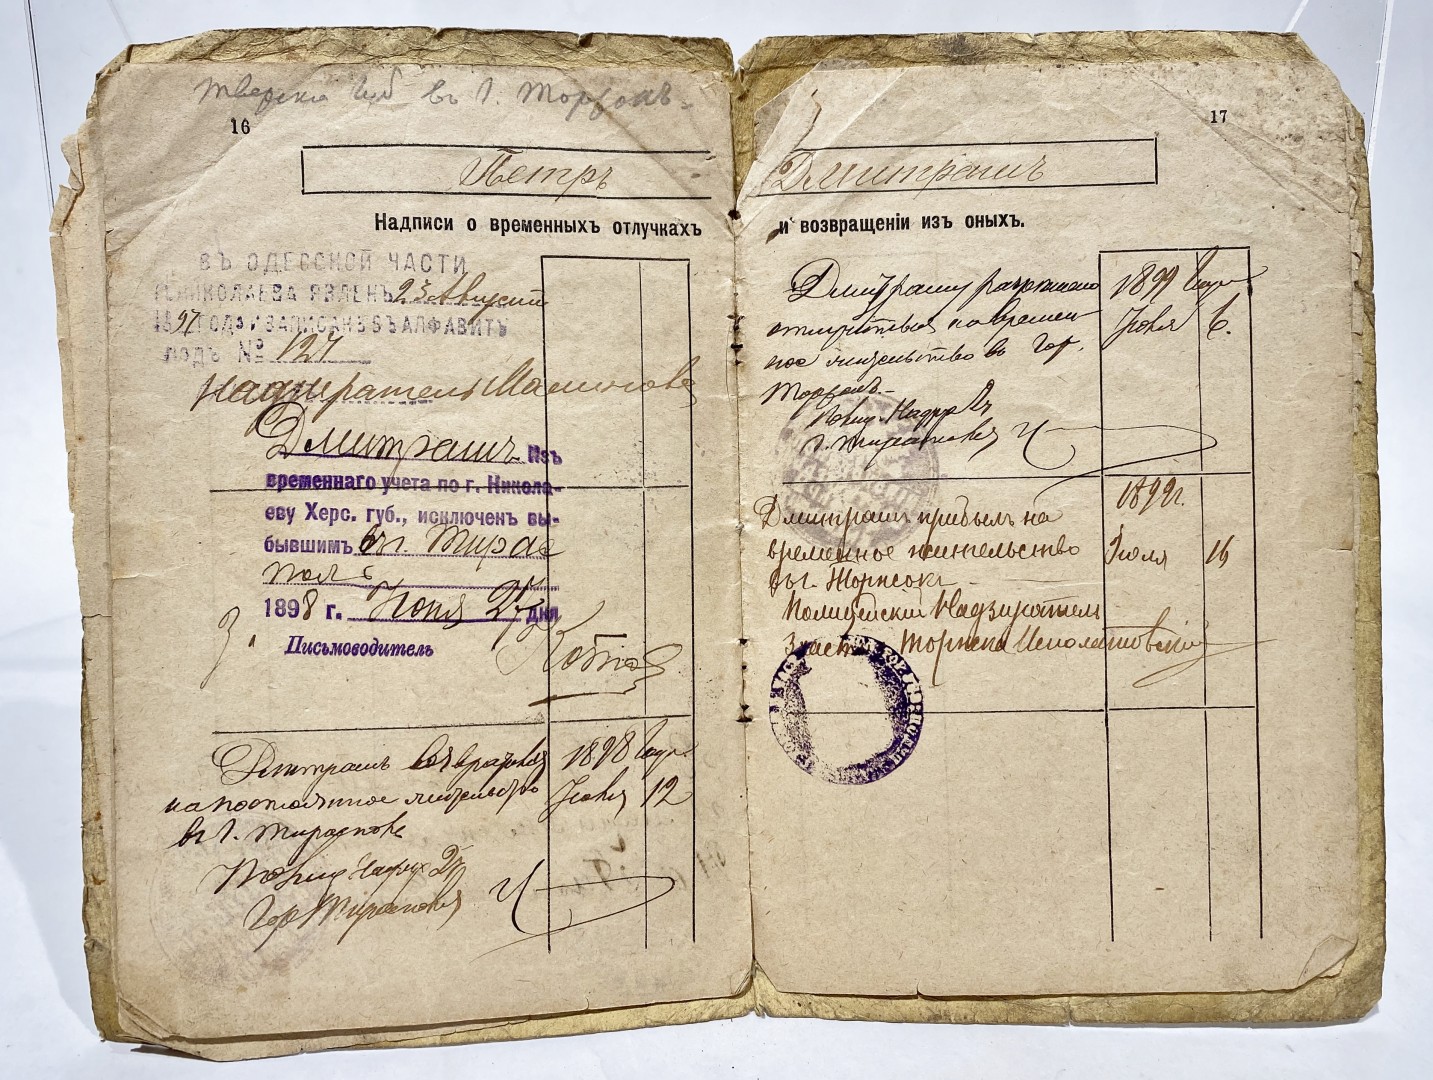 Тверская губ въ г. Торжокъ
16
Петръ
Надписи о временныхъ отлучкахъ
ВЪ ОДЕССКОЙ ЧАСТИ
Г. НИКОЛАЕВА ЯВЛЕНЪ 23 Августа
1897 ГОДА И ЗАПИСАНЪ ВЪ АЛФАВИТЪ
ПОДЪ № 127
надзиратель
Дмитрашъ Изъ
временнаго учета по г. Никола-
еву Херс. губ., исключенъ вы-
бывшимъ въ г. Тирас
поль
1898 г. Июня 27 дня
Письмоводитель
Дмитрашъ возвратился 1898 года
на постоянное жительство Июля 12
въ г. Тирасполь
Гор Тирасполя
17
Дмитрашъ
и возвращеніи изъ оныхъ.
Дмитрашу разрешено 1899 года
отлучиться на времен- Июля 6.
ное жительство въ гор.
Торжокъ
г. Тирасполя
1899 г.
Дмитрашъ прибылъ на
временное жительство Июля 16
въ г. Торжокъ
Полицейскій Надзиратель
3 части Торжка